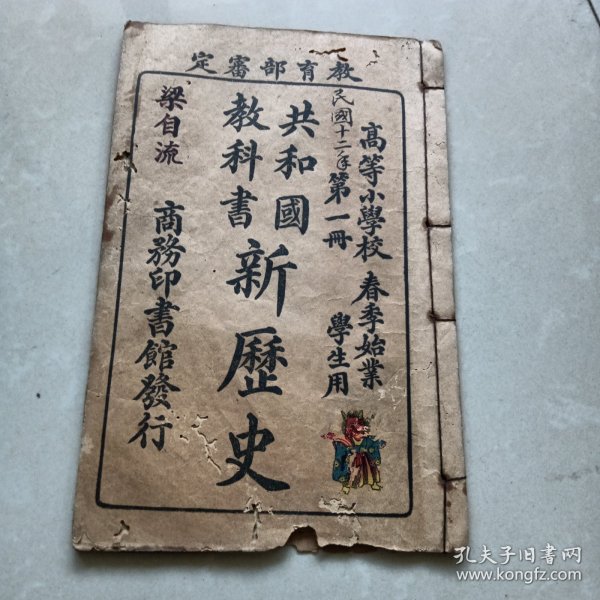 教育部審定
高等小學校 春季始業
民國十二年 第一冊 學生用
共和國
教科書
新歷史
商務印書館發行
梁自流
孔夫子旧书网
www.kongfz.com